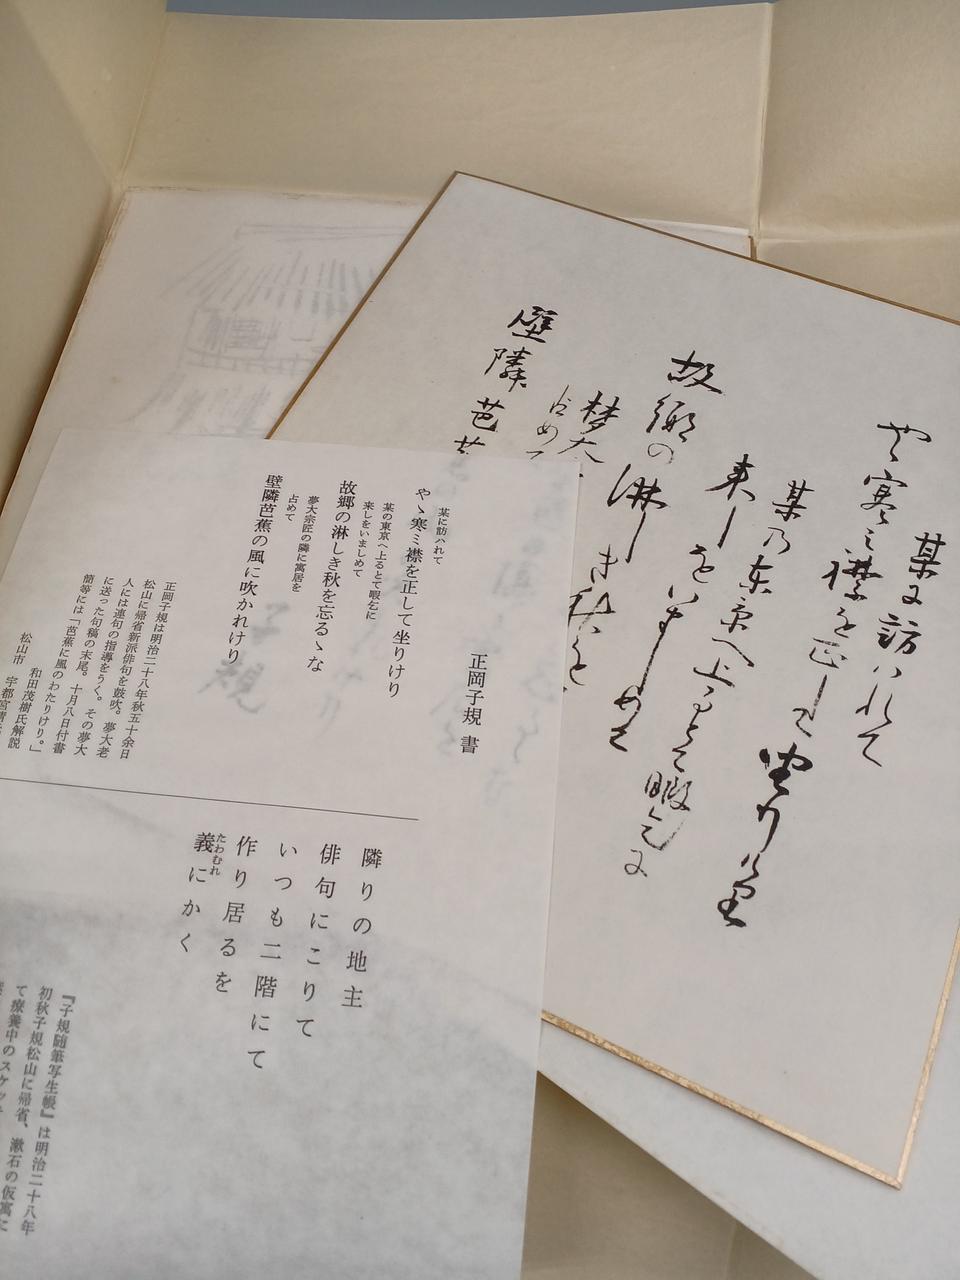 某に訪ハれて
やゝ寒ミ襟を正して坐りけり
某の東京へ上るとて暇乞に
来しをいましめて
故郷の淋しき秋を
夢大
占めて
壁隣芭蕉
正岡子規 書
某に訪ハれて
やゝ寒ミ襟を正して坐りけり
某の東京へ上るとて暇乞に
来しをいましめて
故郷の淋しき秋を忘るゝな
夢大宗匠の隣に寓居を
占めて
壁隣芭蕉の風に吹かれけり
子規
正岡子規は明治二十八年秋五十余日
松山に帰省新派俳句を鼓吹。夢大老
人には連句の指導をうく。その夢大
に送った句稿の末尾。十月八日付書
簡等には「芭蕉に風のわたりけり。」
和田茂樹氏解説
松山市 宇都宮
隣りの地主
俳句にこりて
いつも二階にて
作り居るを
義にかく
たわむれ
『子規随筆写生帳』は明治二十八年
初秋子規松山に帰省、漱石の仮寓に
て療養中のスケッチ